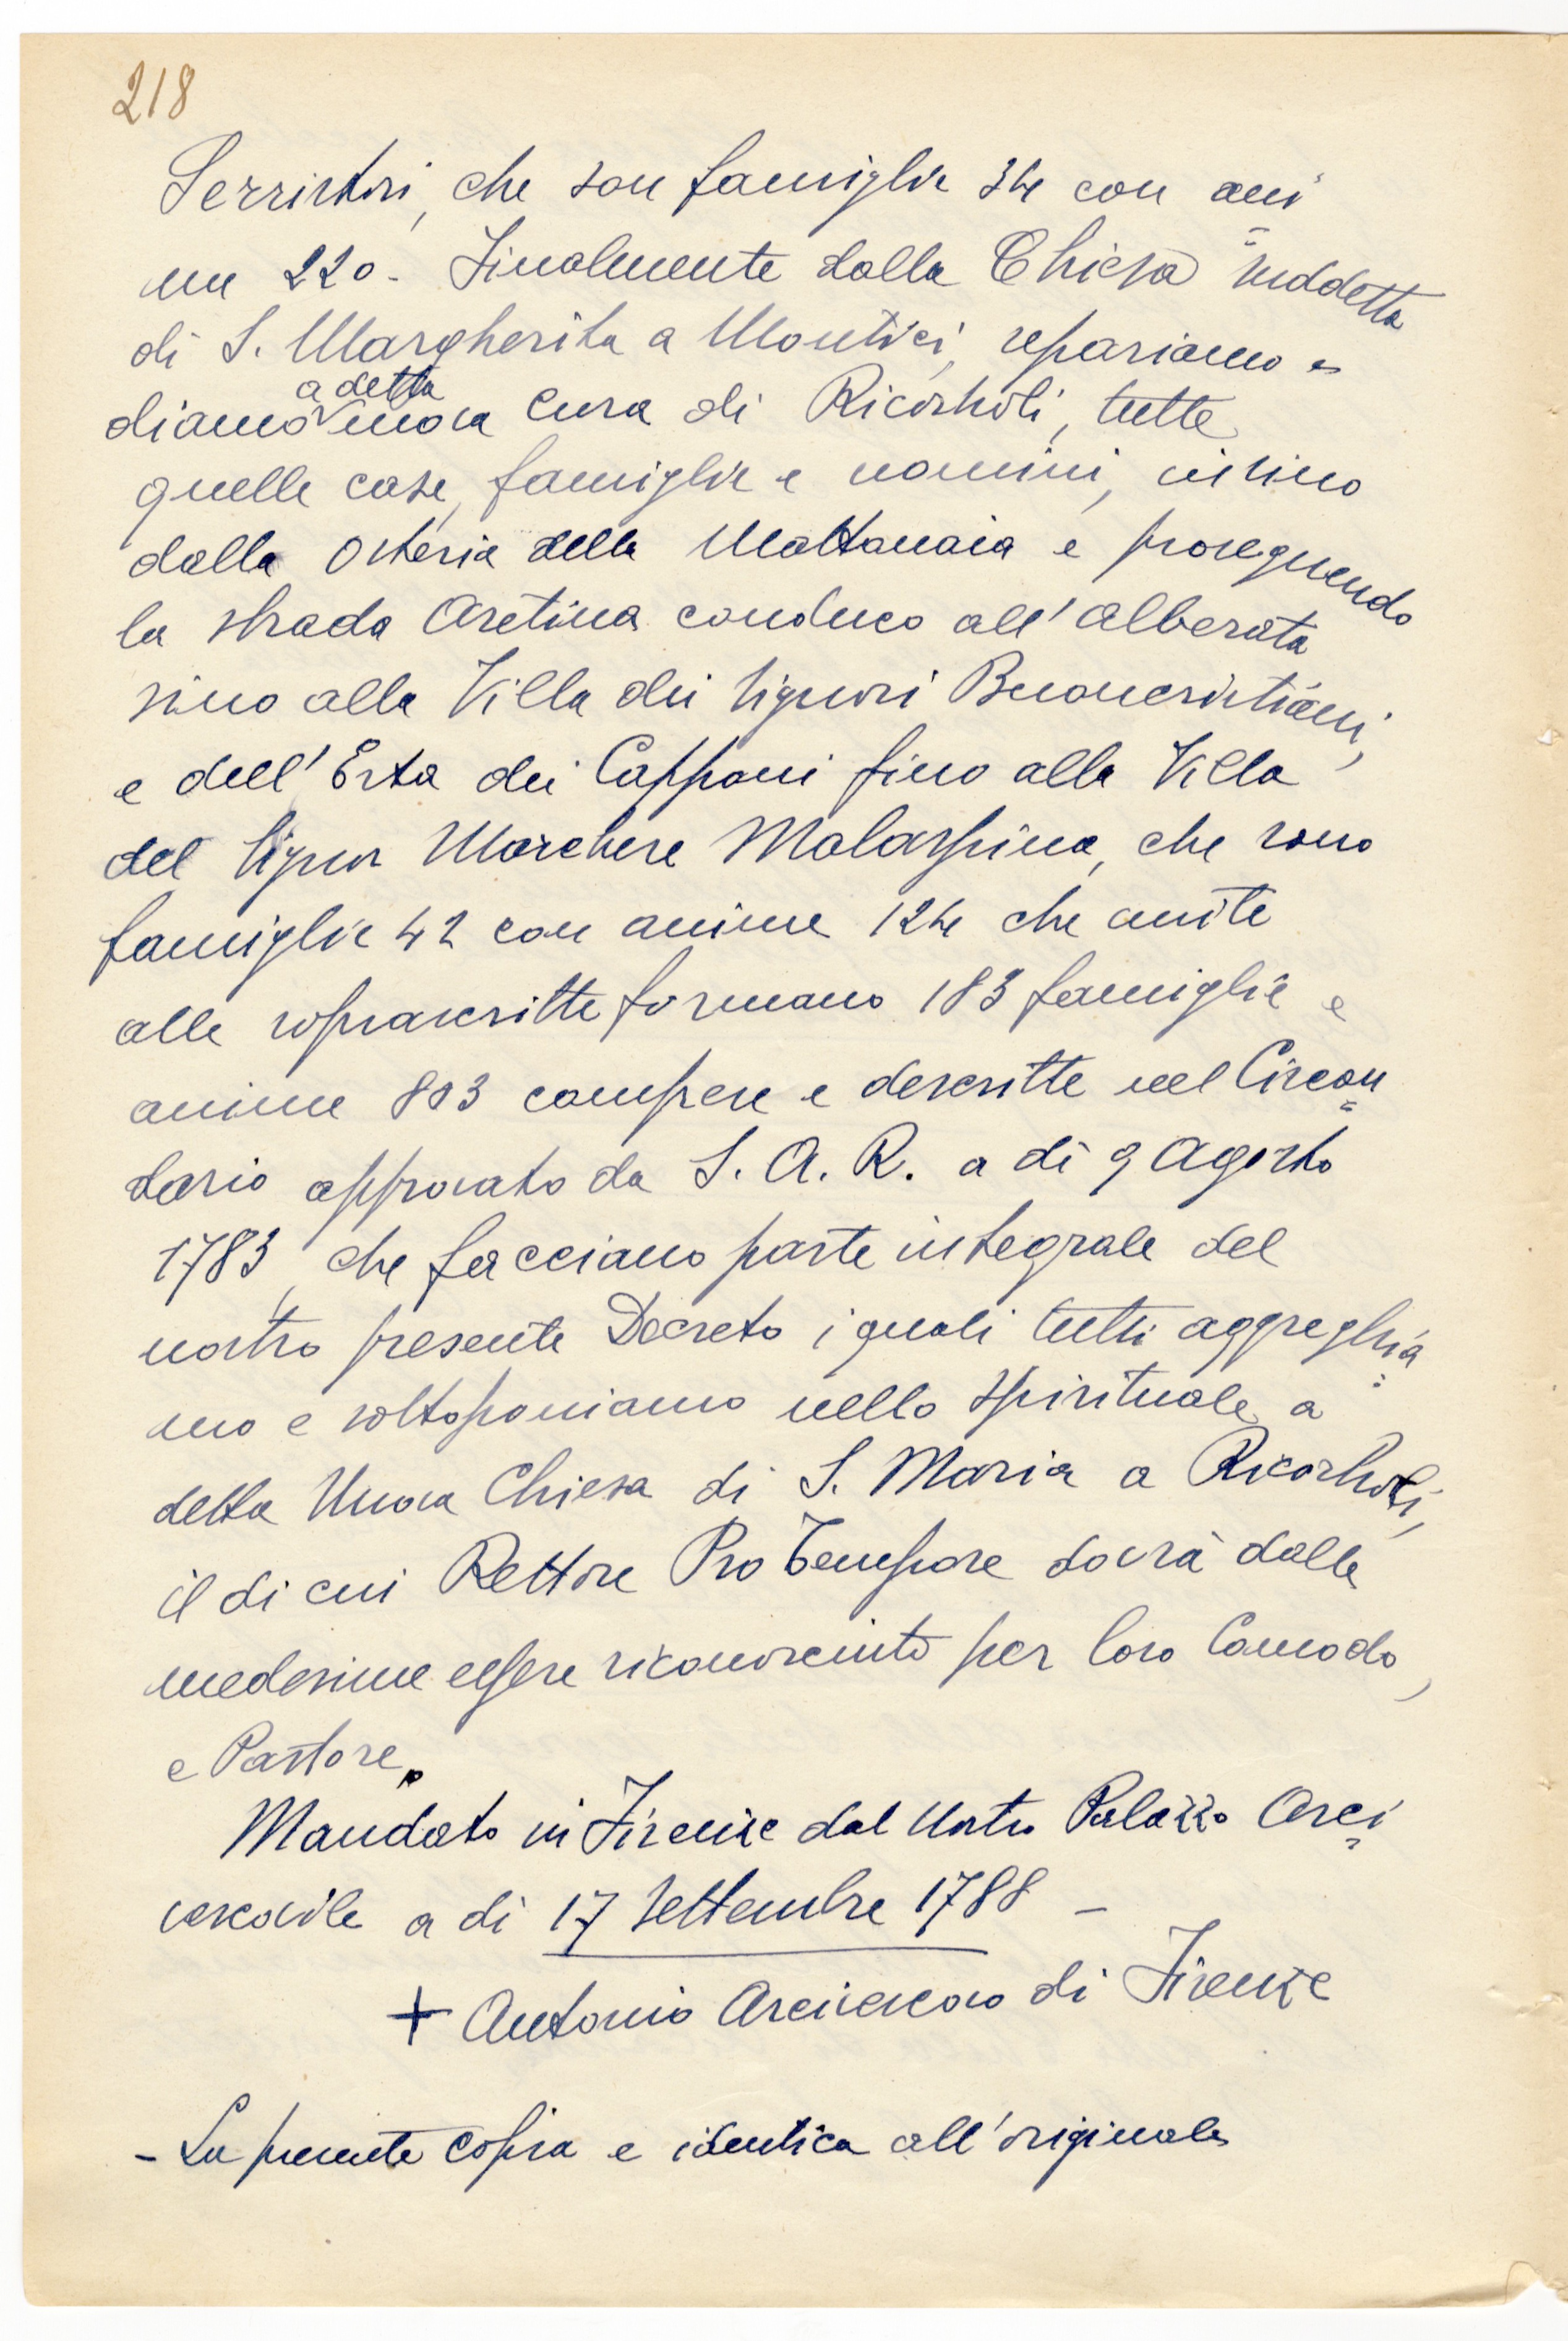 218
Serristori, che son famiglie 34 con ani=
me 220. Finalmente dalla Chiesa suddetta
di S. Margherita a Montici, separiamo e
a detta
diamo nuova Cura di Ricorboli, tutte
quelle case, famiglie e uomini, insino
dalla Osteria della Mattonaia e proseguendo
la strada Aretina conduco all'alberata
sino alla Villa dei Signori Buoncristiani,
e dell'Erta dei Capponi fino alla Villa
del Signor Marchese Malaspina, che sono
famiglie 42 con anime 124 che unite
alle soprascritte formano 183 famiglie e
anime 803 comprese e descritte nel Circon=
dario approvato da S. A. R. a dì 9 Agosto
1783, che facciano parte integrale del
nostro presente Decreto i quali tutti aggreghia=
mo e sottoponiamo nello spirituale a
detta Nuova Chiesa di S. Maria a Ricorboli,
il di cui Rettore Pro Tempore dovrà dalle
medesime essere riconosciuto per loro Comodo,
e Pastore.
Mandato in Firenze dal Nostro Palazzo Arci=
vescovile a dì 17 Settembre 1788 -
+ Antonio Arcivescovo di Firenze
- La presente copia e identica all'originale